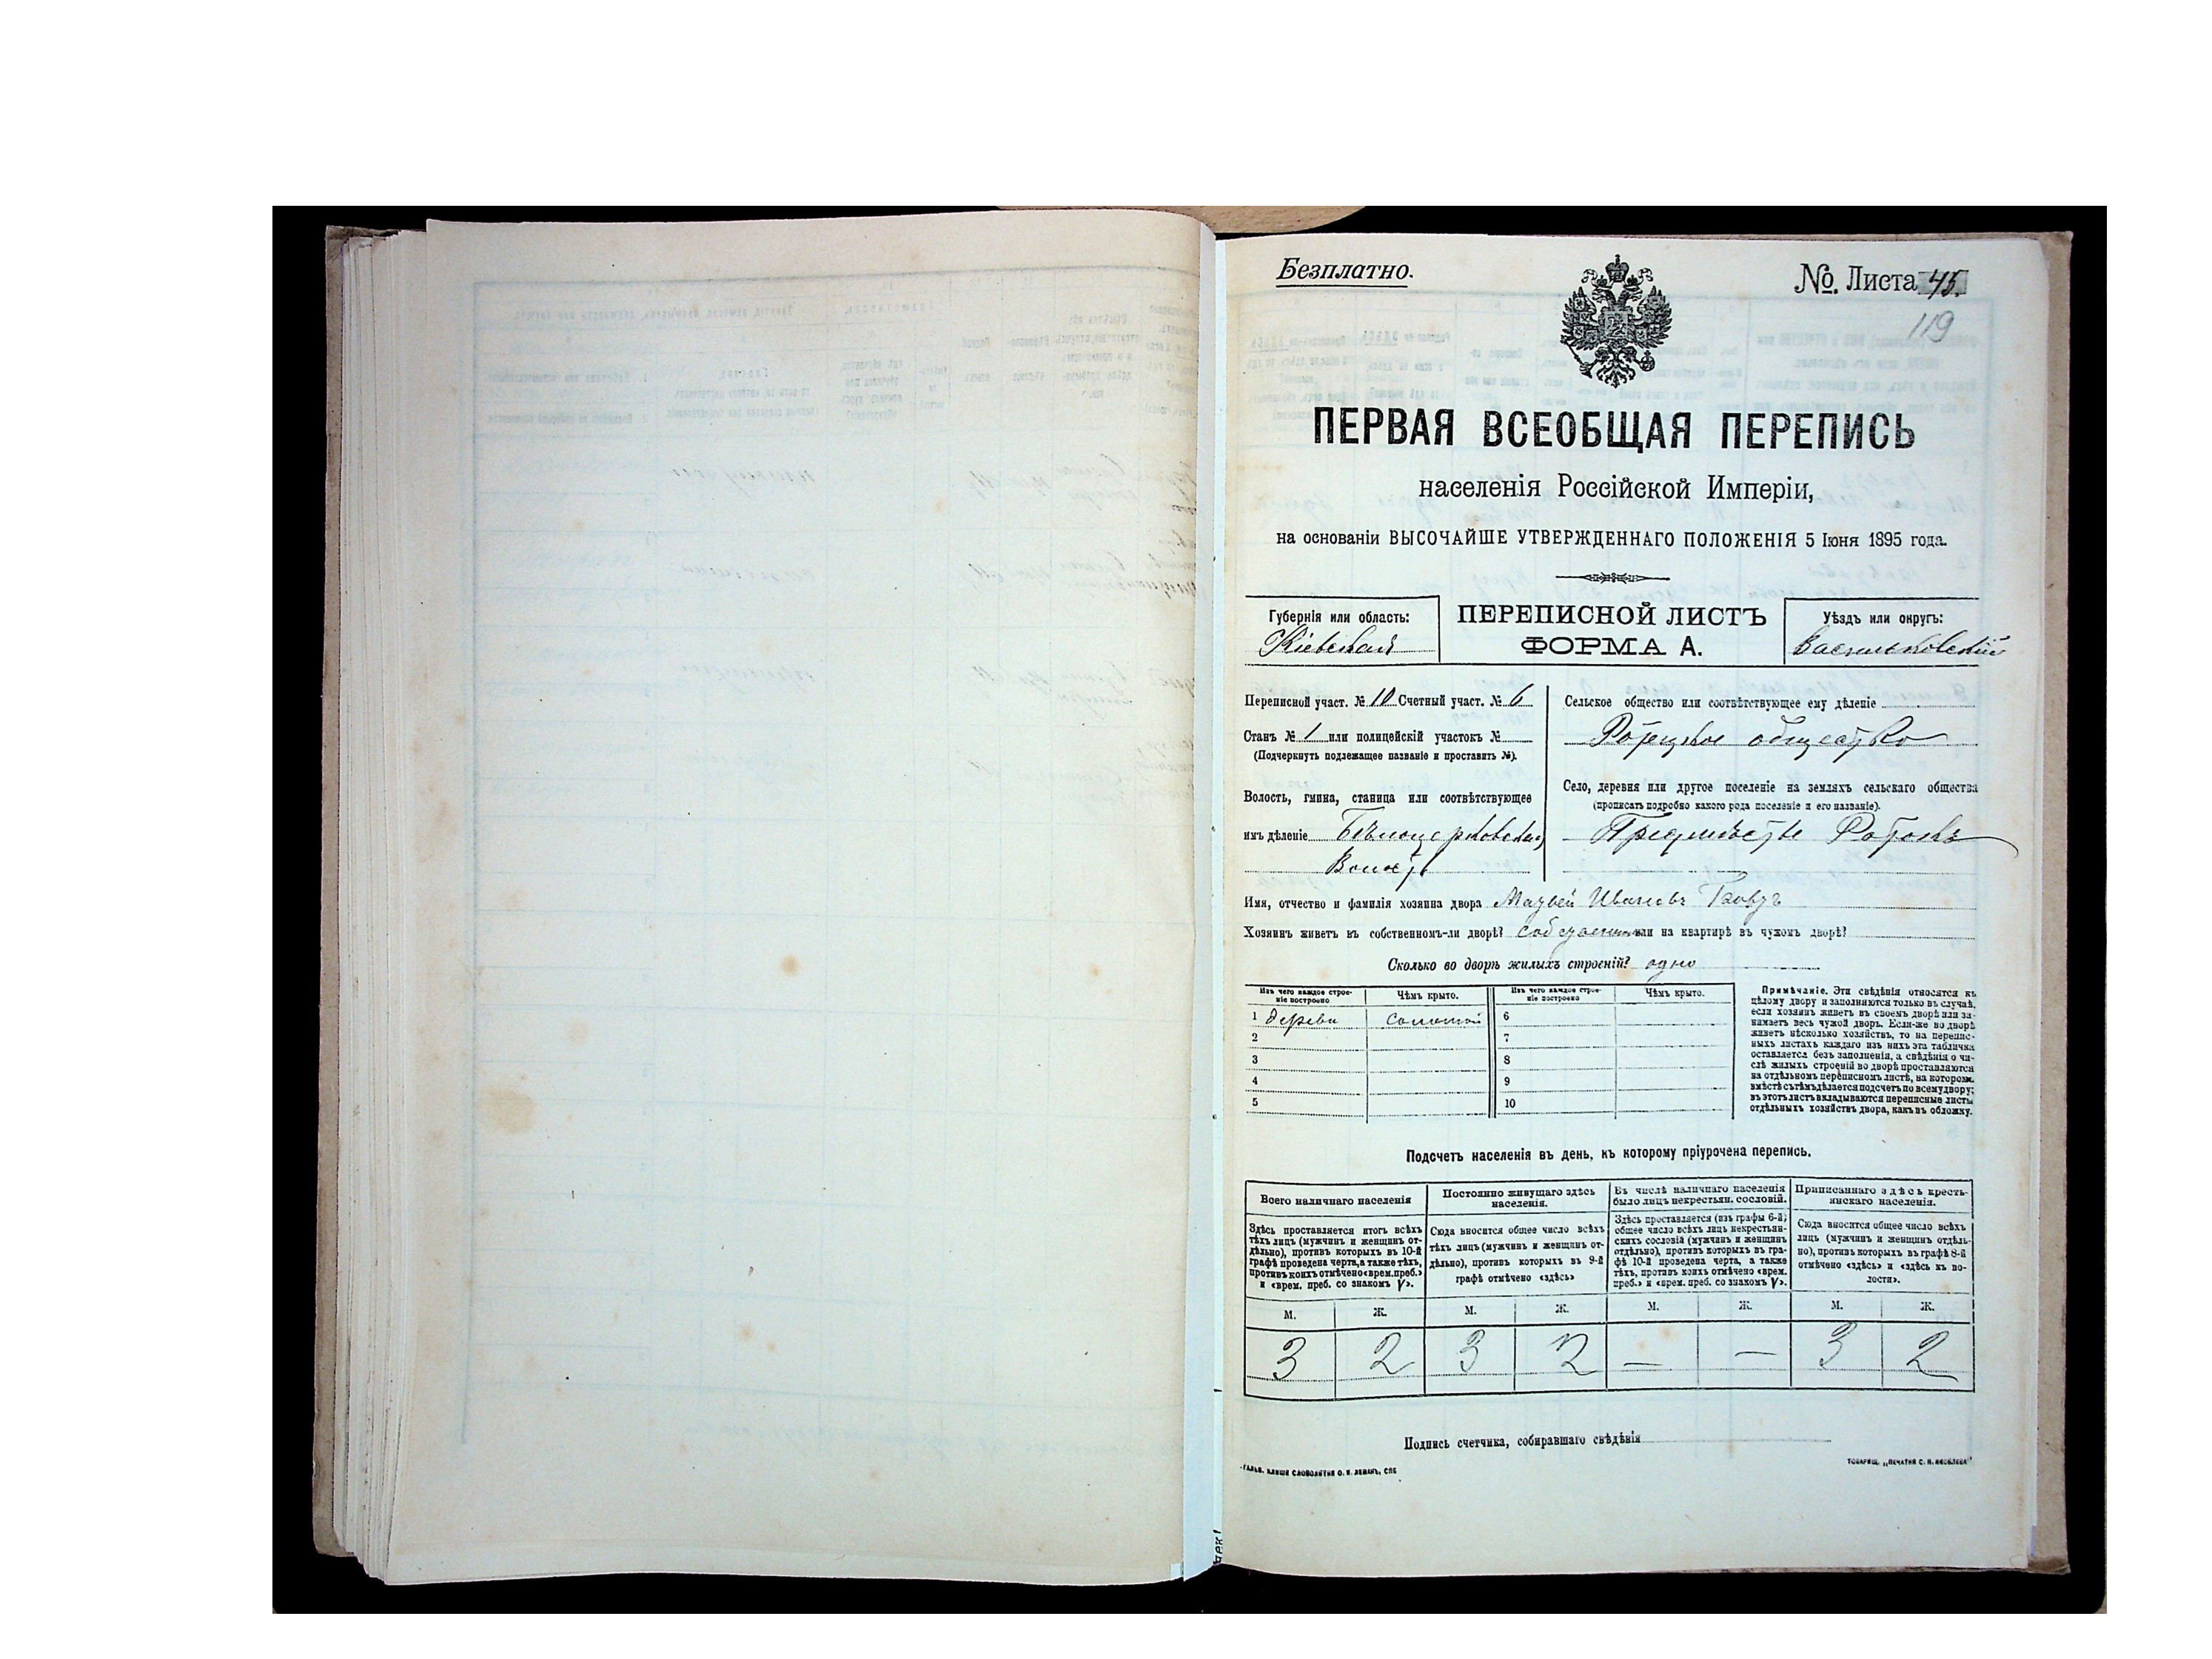 Безплатно.
№ Листа 45.
119
ПЕРВАЯ ВСЕОБЩАЯ ПЕРЕПИСЬ
населенія Россійской Имперіи,
на основаніи ВЫСОЧАЙШЕ УТВЕРЖДЕННАГО ПОЛОЖЕНІЯ 5 Іюня 1895 года.
Губернія или область:
Кіевская
ПЕРЕПИСНОЙ ЛИСТЪ
ФОРМА А.
Уѣздъ или округъ:
Васильковскій
Переписной участ. № 10 Счетный участ. № 6
Станъ № 1 или полицейскій участокъ №
(Подчеркнуть подлежащее названіе и проставить №).
Волость, гмина, станица или соотвѣтствующее
имъ дѣленіе Бѣлоцерковская
Волость
Сельское общество или соотвѣтствующее ему дѣленіе
общество
Село, деревня или другое поселеніе на земляхъ сельскаго общества
(прописать подробно какого рода поселеніе и его названіе).
Предмѣстье Ротокъ
Имя, отчество и фамилія хозяина двора Матвей Ивановъ
Хозяинъ живетъ въ собственномъ-ли дворѣ? или на квартирѣ въ чужомъ дворѣ?
Сколько во дворѣ жилыхъ строеній? одно
Изъ чего каждое строеніе построено
Чѣмъ крыто.
Изъ чего каждое строеніе построено
Чѣмъ крыто.
1 дерева соломой 6
2 7
3 8
4 9
5 10
Примѣчаніе. Эти свѣдѣнія относятся къ
цѣлому двору и заполняются только въ случаѣ,
если хозяинъ живетъ въ своемъ дворѣ или за-
нимаетъ весь чужой дворъ. Если-же во дворѣ
живетъ нѣсколько хозяйствъ, то на перепис-
ныхъ листахъ каждаго изъ нихъ эта табличка
оставляется безъ заполненія, а свѣдѣнія о чи-
слѣ жилыхъ строеній во дворѣ проставляются
на отдѣльномъ переписномъ листѣ, на которомъ
вмѣстѣ съ тѣмъ дѣлается подсчетъ по всему двору;
въ этотъ листъ вкладываются переписные листы
отдѣльныхъ хозяйствъ двора, какъ въ обложку.
Подсчетъ населенія въ день, къ которому пріурочена перепись.
Всего наличнаго населенія
Здѣсь проставляется итогъ всѣхъ
тѣхъ лицъ (мужчинъ и женщинъ от-
дѣльно), противъ которыхъ въ 10-й
графѣ проведена черта, а также тѣхъ,
противъ коихъ отмѣчено «врем. преб.»
и «врем. преб. со знакомъ V».
Постоянно живущаго здѣсь
населенія.
Сюда вносится общее число всѣхъ
тѣхъ лицъ (мужчинъ и женщинъ от-
дѣльно), противъ которыхъ въ 9-й
графѣ отмѣчено «здѣсь»
Въ числѣ наличнаго населенія
было лицъ некрестьян. сословій.
Здѣсь проставляется (изъ графы 6-й)
общее число всѣхъ лицъ некрестьян-
скихъ сословій (мужчинъ и женщинъ
отдѣльно), противъ которыхъ въ гра-
фѣ 10-й проведена черта, а также
тѣхъ, противъ коихъ отмѣчено «врем.
преб.» и «врем. преб. со знакомъ V».
Приписаннаго здѣсь кресть-
янскаго населенія.
Сюда вносится общее число всѣхъ
лицъ (мужчинъ и женщинъ отдѣль-
но), противъ которыхъ въ графѣ 8-й
отмѣчено «здѣсь» и «здѣсь къ во-
лости».
М. Ж. М. Ж. М. Ж. М. Ж.
3 2 3 2 — — 3 2
Подпись счетчика, собиравшаго свѣдѣнія
ГАЛЬВ. КЛИШИ СЛОВОЛИТНИ О. И. ЛЕМАНЪ, СПБ
ТОВАРИЩ. „ПЕЧАТНЯ С. П. ЯКОВЛЕВА"